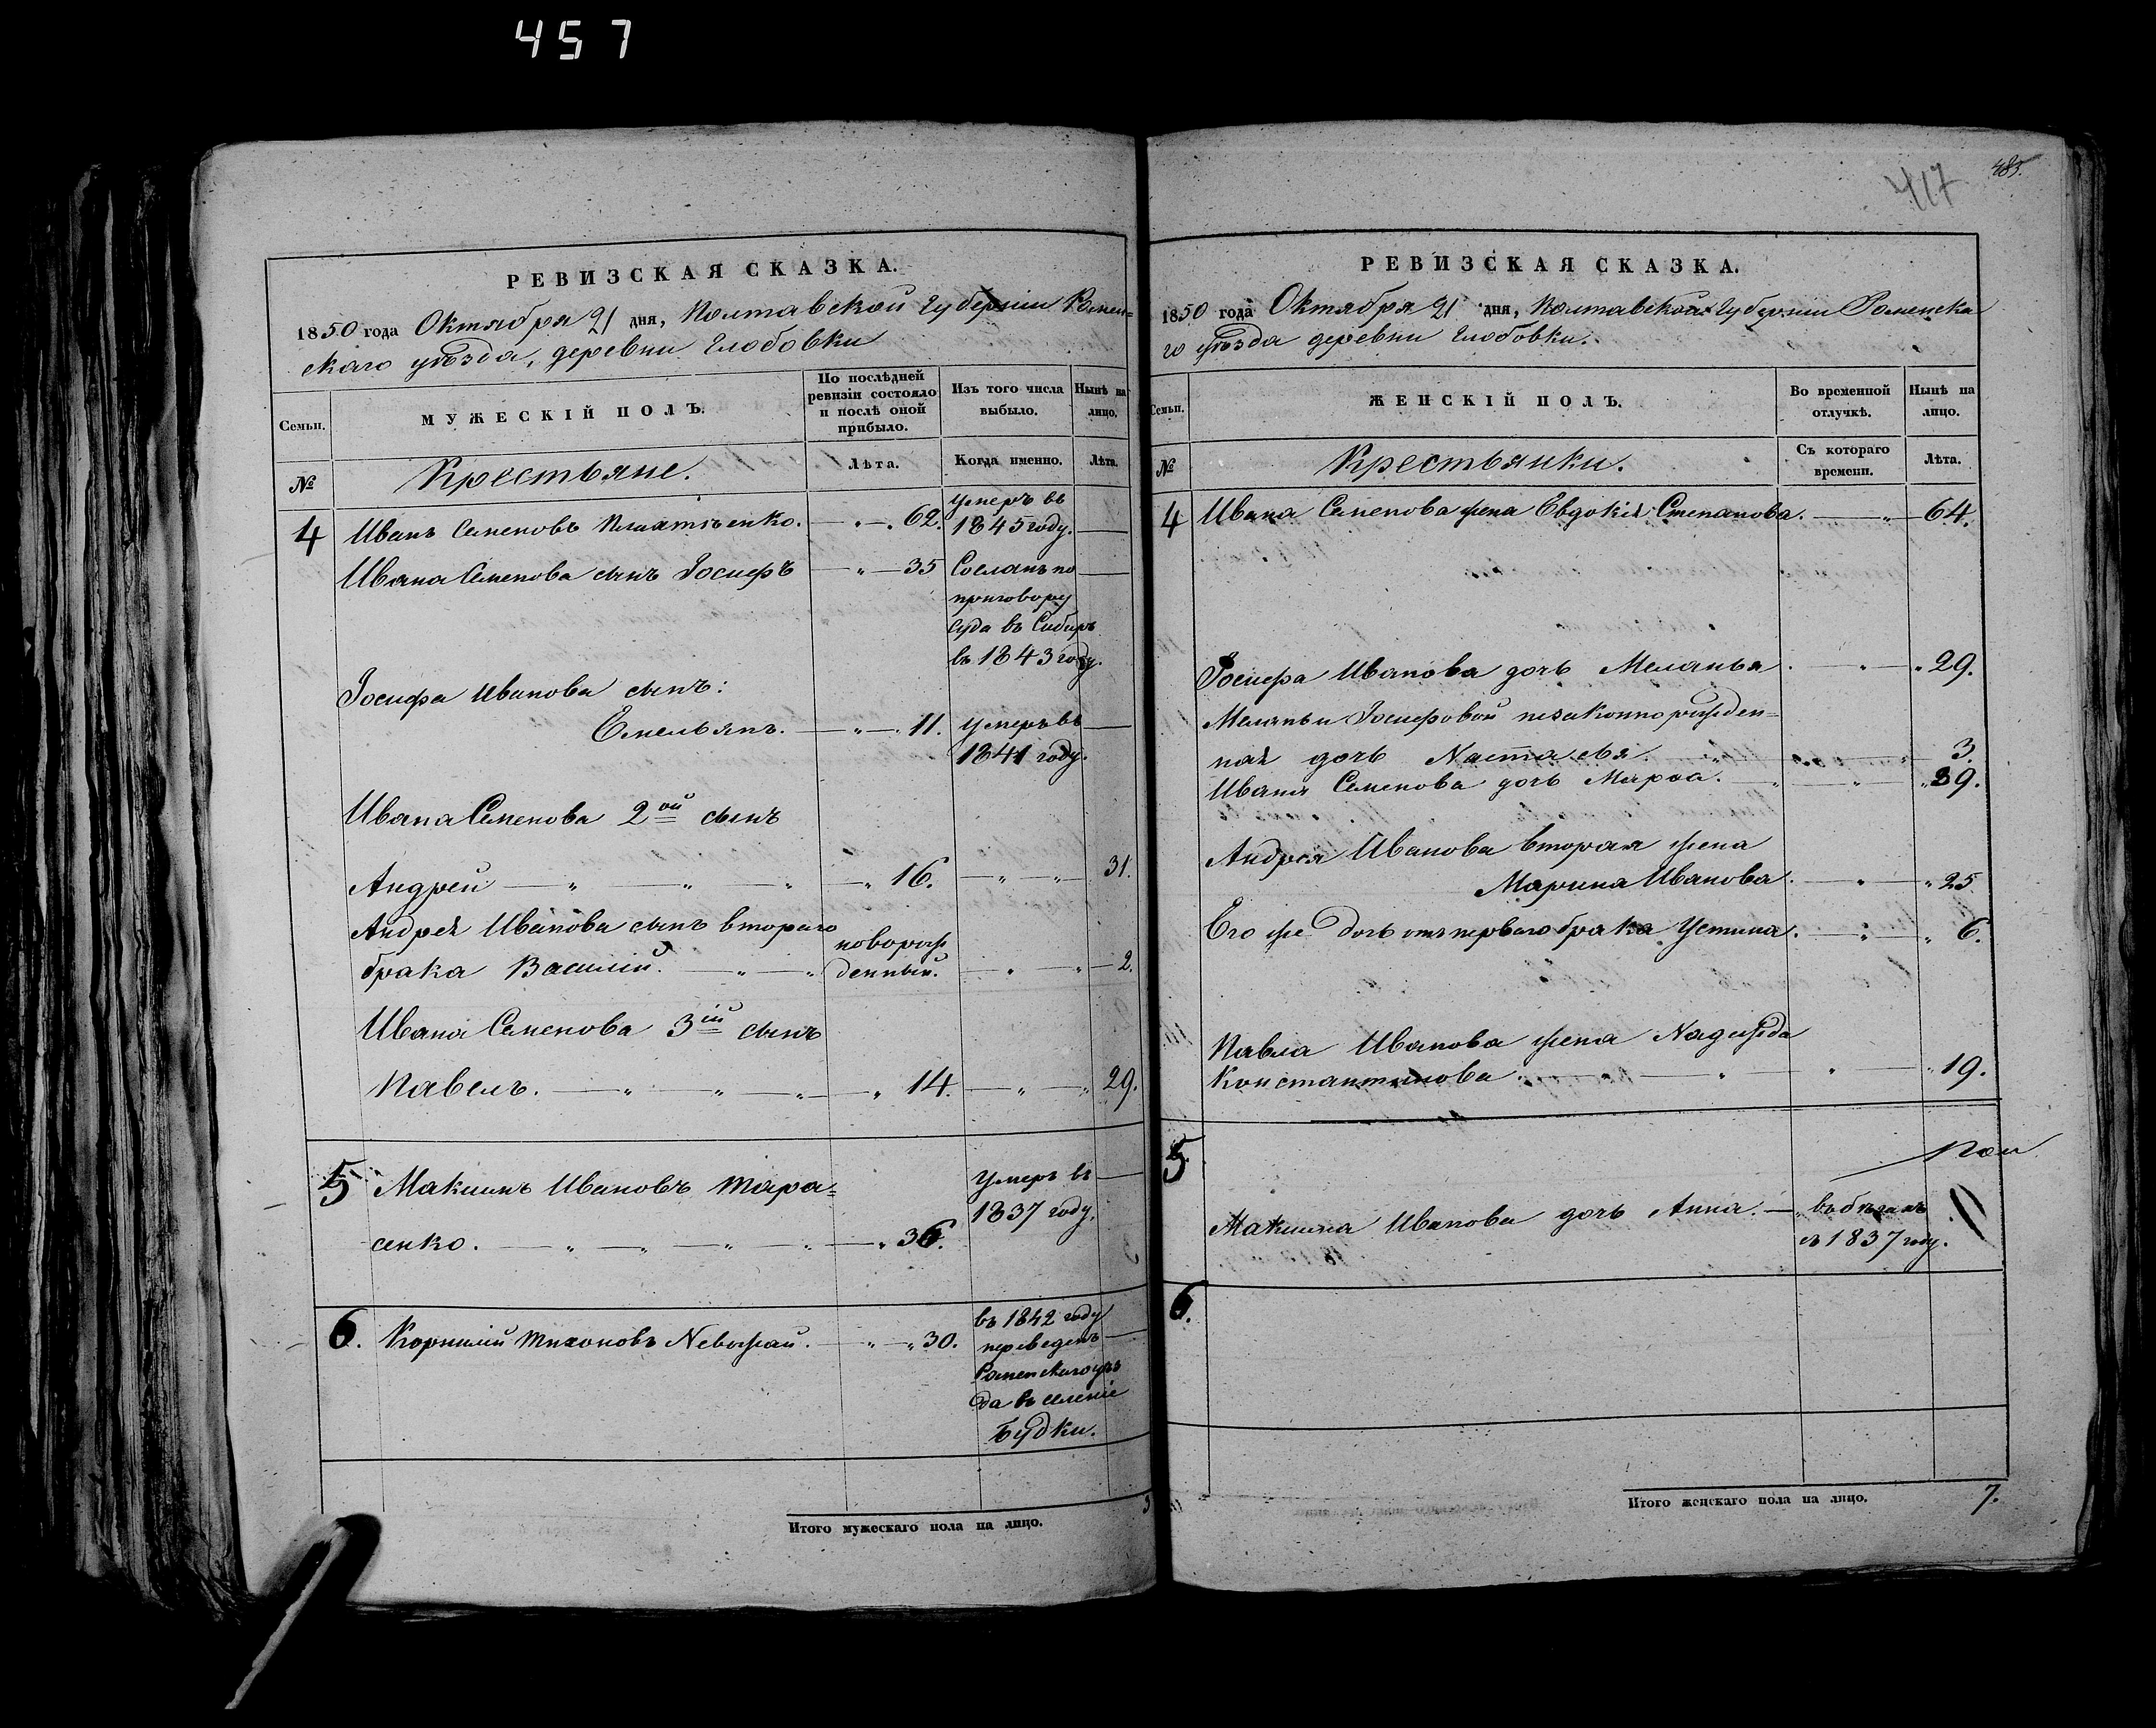 457
РЕВИЗСКАЯ СКАЗКА.
1850 года Октября 21 дня, Полтавской Губерніи Ромен=
скаго уѣзда, деревни Глобовки
Семьи.
МУЖЕСКІЙ ПОЛЪ.
По послѣдней
ревизіи состояло
и послѣ оной
прибыло.
Изъ того числа
выбыло.
Нынѣ на
лицо.
№
Крестьяне.
Лѣта.
Когда именно.
Лѣта.
4 Иванъ Семеновъ 62. умеръ въ
1845 году.
Ивана Семенова сынъ Іосифъ 35 Сосланъ по
приговору
суда въ Сибирь
въ 1843 году.
Іосифа Иванова сынъ:
Емельянъ. 11. умеръ въ
1841 году.
Ивана Семенова 2ой сынъ
Андрей 16. 31.
Андрея Иванова сынъ втораго
брака Василій. новорож
денный. 2.
Ивана Семенова 3ій сынъ
Павелъ. 14. 29.
5 Максимъ Ивановъ Тара=
сенко. 36. умеръ въ
1837 году.
6. Корнилій Тихоновъ Невожай. 30. въ 1842 году
переведенъ
Роменскаго уѣз
да въ селеніе
Будки.
Итого мужескаго пола на лицо. 3
417
485.
РЕВИЗСКАЯ СКАЗКА.
1850 года Октября 21 дня, Полтавской Губерніи Роменска
го уѣзда деревни Глобовки.
Семьи.
ЖЕНСКІЙ ПОЛЪ.
Во временной
отлучкѣ.
Нынѣ на
лицо.
№
Крестьянки.
Съ котораго
времени.
Лѣта.
4 Ивана Семенова жена Евдокія Степанова. 64.
Іосифа Иванова дочь Меланья 29.
Меланьи Іосифовой незаконнорожден=
ная дочь Настасья. 3.
Ивана Семенова дочь Марфа. 39.
Андрея Иванова вторая жена
Марина Иванова. 25.
Его же дочь отъ перваго брака Устина. 6.
Павла Иванова жена Надежда
Константинова. 19.
5
Максима Иванова дочь Анна. въ бѣгахъ
съ 1837 году.
6.
Итого женскаго пола на лицо. 7.